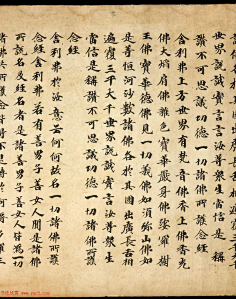 世界說誠實言汝等衆生當信是稱
讚不可思議功德一切諸佛所護念經
舍利弗上方世界有梵音佛香上佛香光
佛大焰肩佛雜色寶華嚴身佛娑羅樹
王佛寶華德佛見一切義佛如須彌山佛如
是等恒河沙數諸佛各於其國出廣長舌相
遍覆三千大千世界說誠實言汝等衆生
當信是稱讚不可思議功德一切諸佛所護
念經
舍利弗於汝意云何何故名一切諸佛所護
念經舍利弗若有善男子善女人聞是諸佛
所說名及經名者是諸善男子善女人皆爲一切
諸佛所護念皆得不退轉於阿耨多羅三